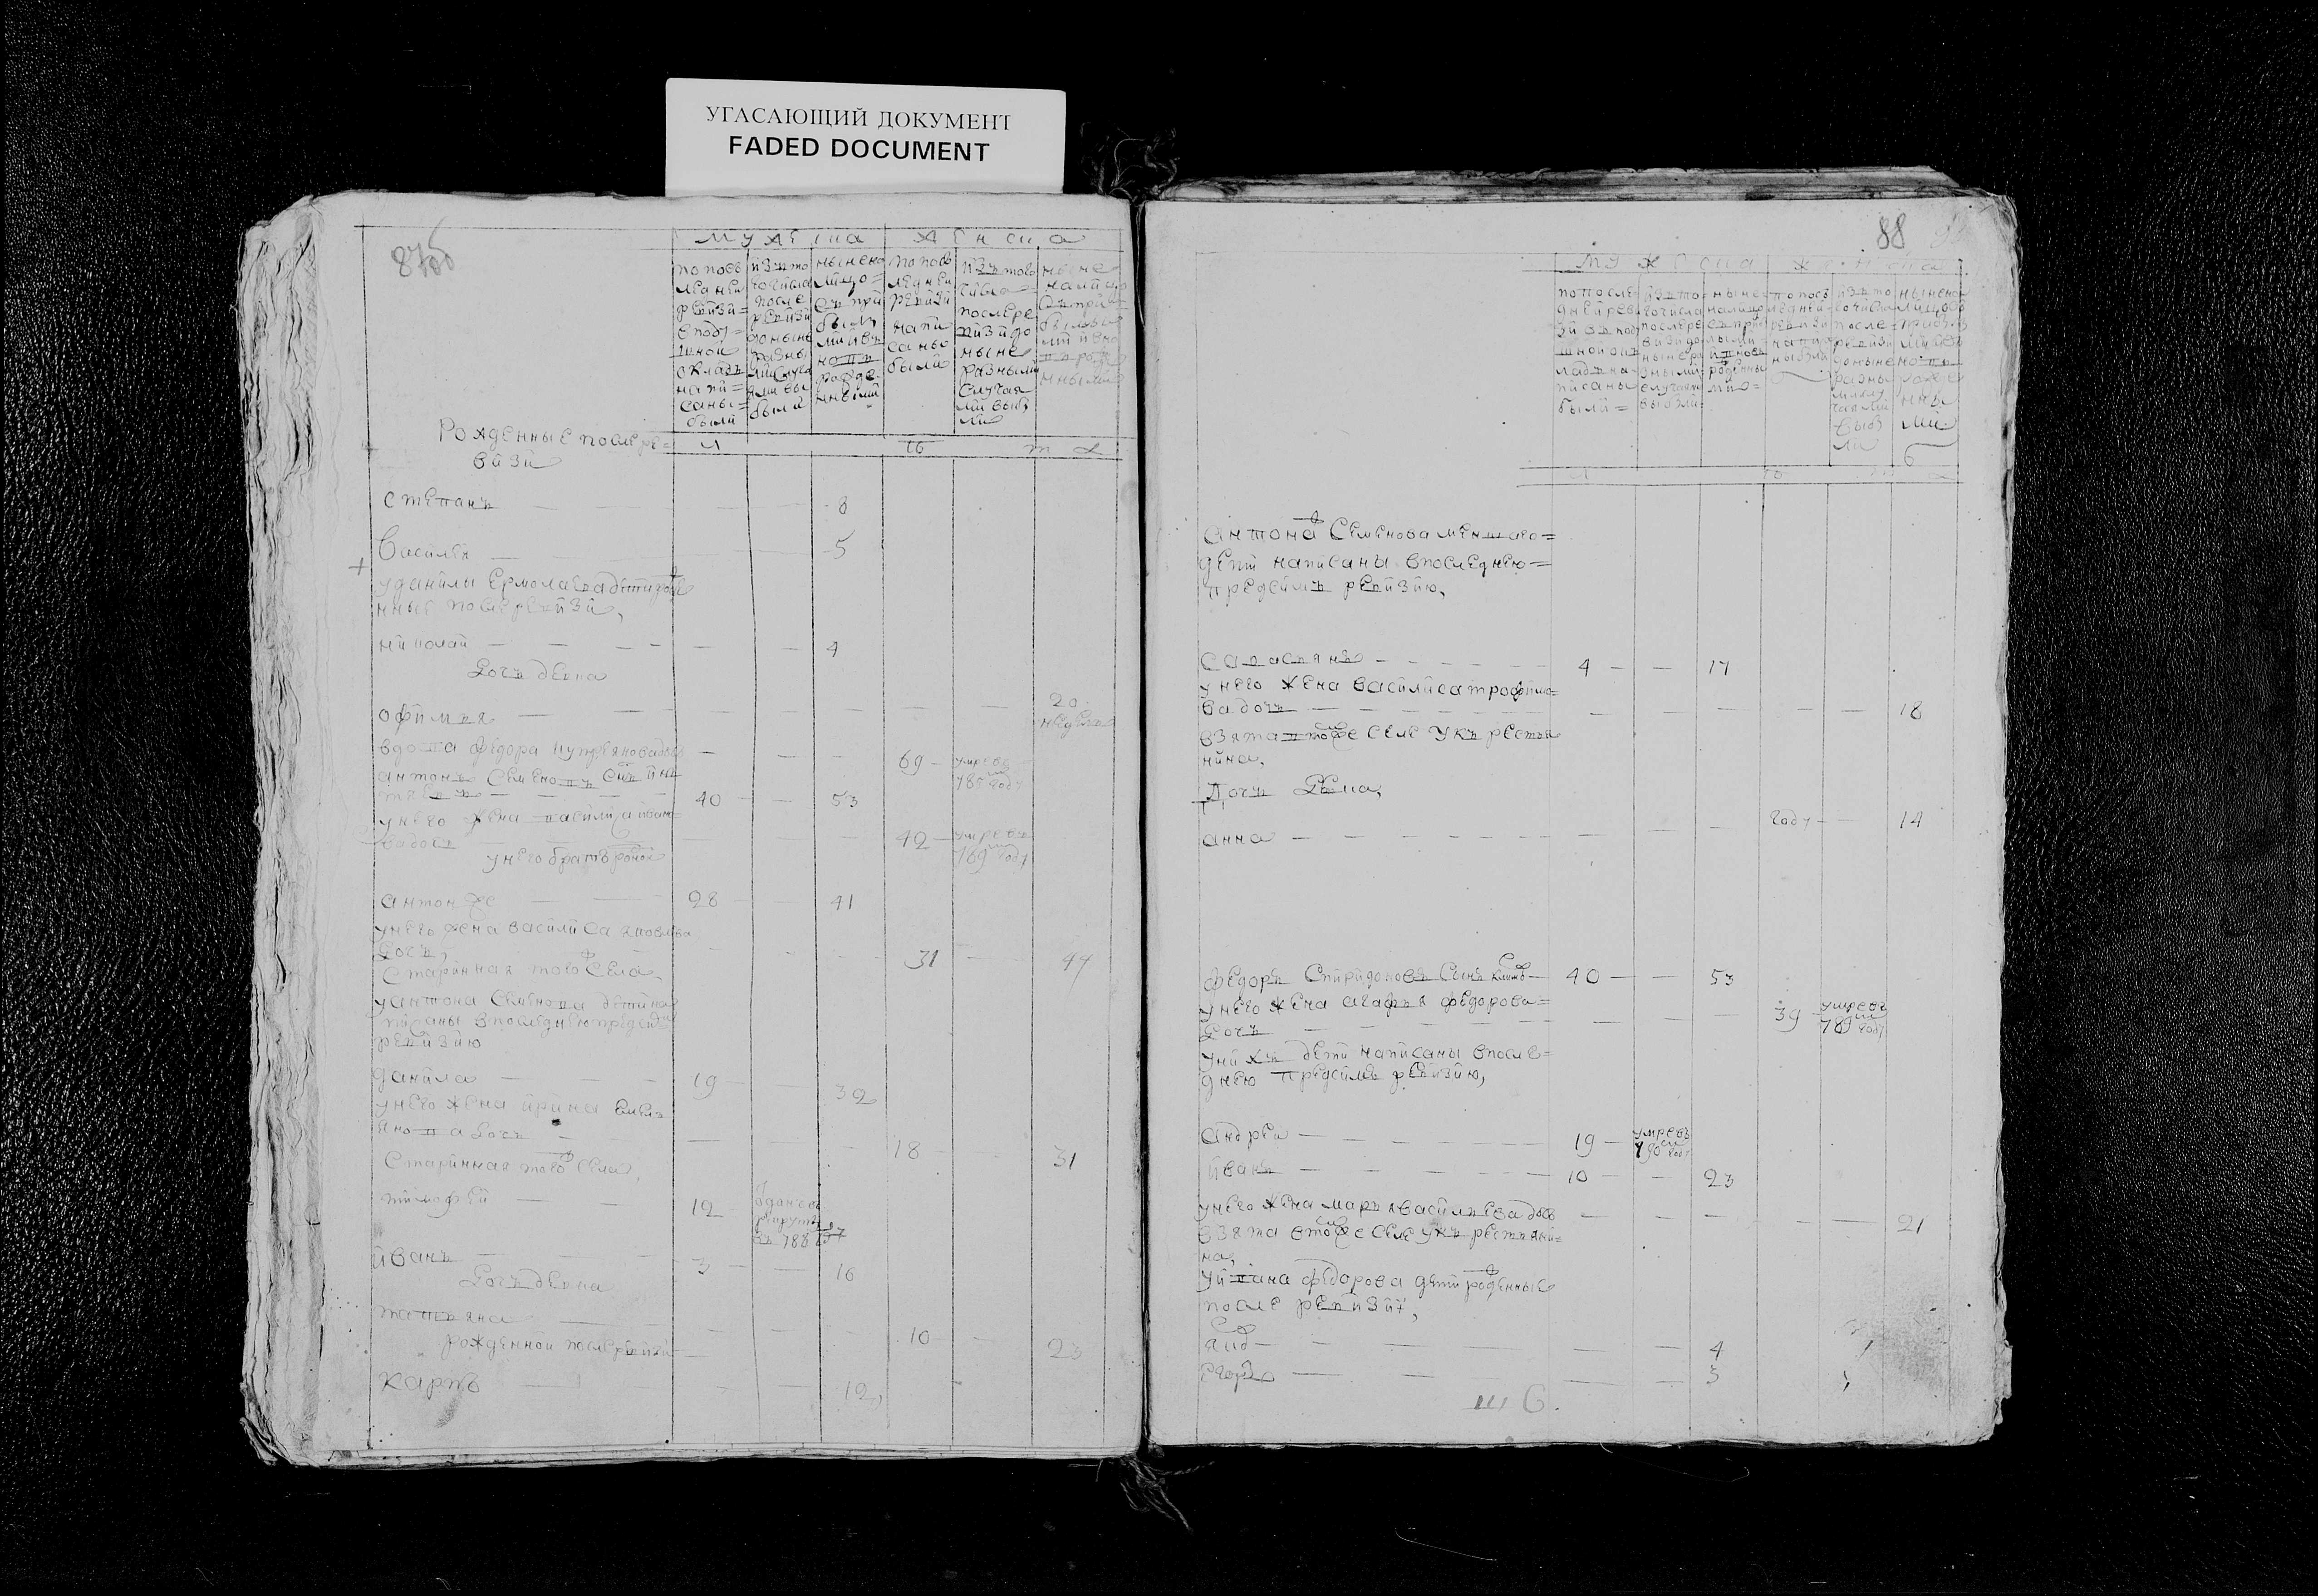 УГАСАЮЩИЙ ДОКУМЕНТ
FADED DOCUMENT
мужеска женска
по после
дней
реви́зи
в поду
шной
окладъ
напи
саны
были
изъ то
го числа
после
ревизи
до ныне
разны
ми случа
ями вы
были
ныне на
лицо
съ при
былы
ми и вь
новъ
рожде
нными
по посл
едней
ревизи
напи
саны
были
изъ того
числа
после ре
визи до
ныне
разными
случая
ми выб
ли
ныне
налицо
съ при
былы
ми и вно
въ рожде
нными
Рожденные после ре=
визи
л ѣ т а
степанъ — 8
Василей — 5
у данилы Ермолаева дети рожде
нные после ревизи,
николай — 4
дочь девка
офимья — 20
недель
вдова федора куприянова дочь — 69 умре въ
785 м году
антонъ Семеновъ снъ
40 — 53
у него жена василиса иван=
ва дочь — 42 умре въ
году
у него братъ родной
антон же — 28 — 41
у него жена василиса яковлева
дочь, — 31 — 44
старинная того села,
у антона семенова дети на
писаны в последнею пред сим
ревизию
данила — 19 — 32
у него жена ирина Емель
янова дочь — 18 — 31
старинная того села,
тимофей — 12 отданъ в
рекруты
въ 788 м
иванъ — 3 — 16
дочь девка
татьяна — 10 — 23
рожденной после ревизи
карпъ — 12,
88
мужеска женска
по после
дней реви
зи въ поду
шной ок
ладъ на
писаны
были=
изъ то
го числа
после ре
визи до
ныне ра
зными
случаями
выбыли
ныне
налицо
съ при
былыми
и вновь
рожденны
ми=
по посл
едней
ревизи
напи са
ны были
изъ то
го числа
после
ревизи
до ныне
разны
ми слу
чаями
выбы
ли
ныне на
лицо съ
прибы
лыми
но въ
рожде
нны
ми
антона Семенова меншаго=
дети написаны в последнею=
предсимъ ревизию,
савастьянъ — 4 — 17
у него жена василиса трофимо=
ва дочь — 18
взята в томже селе у крестья
нина,
Дочь девка,
анна — году — 14
федоръ Спиридоновъ сынъ — 40 — 53
у него жена агафья федорова=
дочь — 39 умре въ
789 м году
у нихъ дети написаны в после=
днею предсимъ ревизию,
андрей — 19 — умре въ
790 м году
иванъ — 10 — 23
у него жена марья васильева дочь — 21
взята в томже селе у крестьяни=
на,
у ивана федорова дети рожденные
после ревизии,
4
егоръ — 3